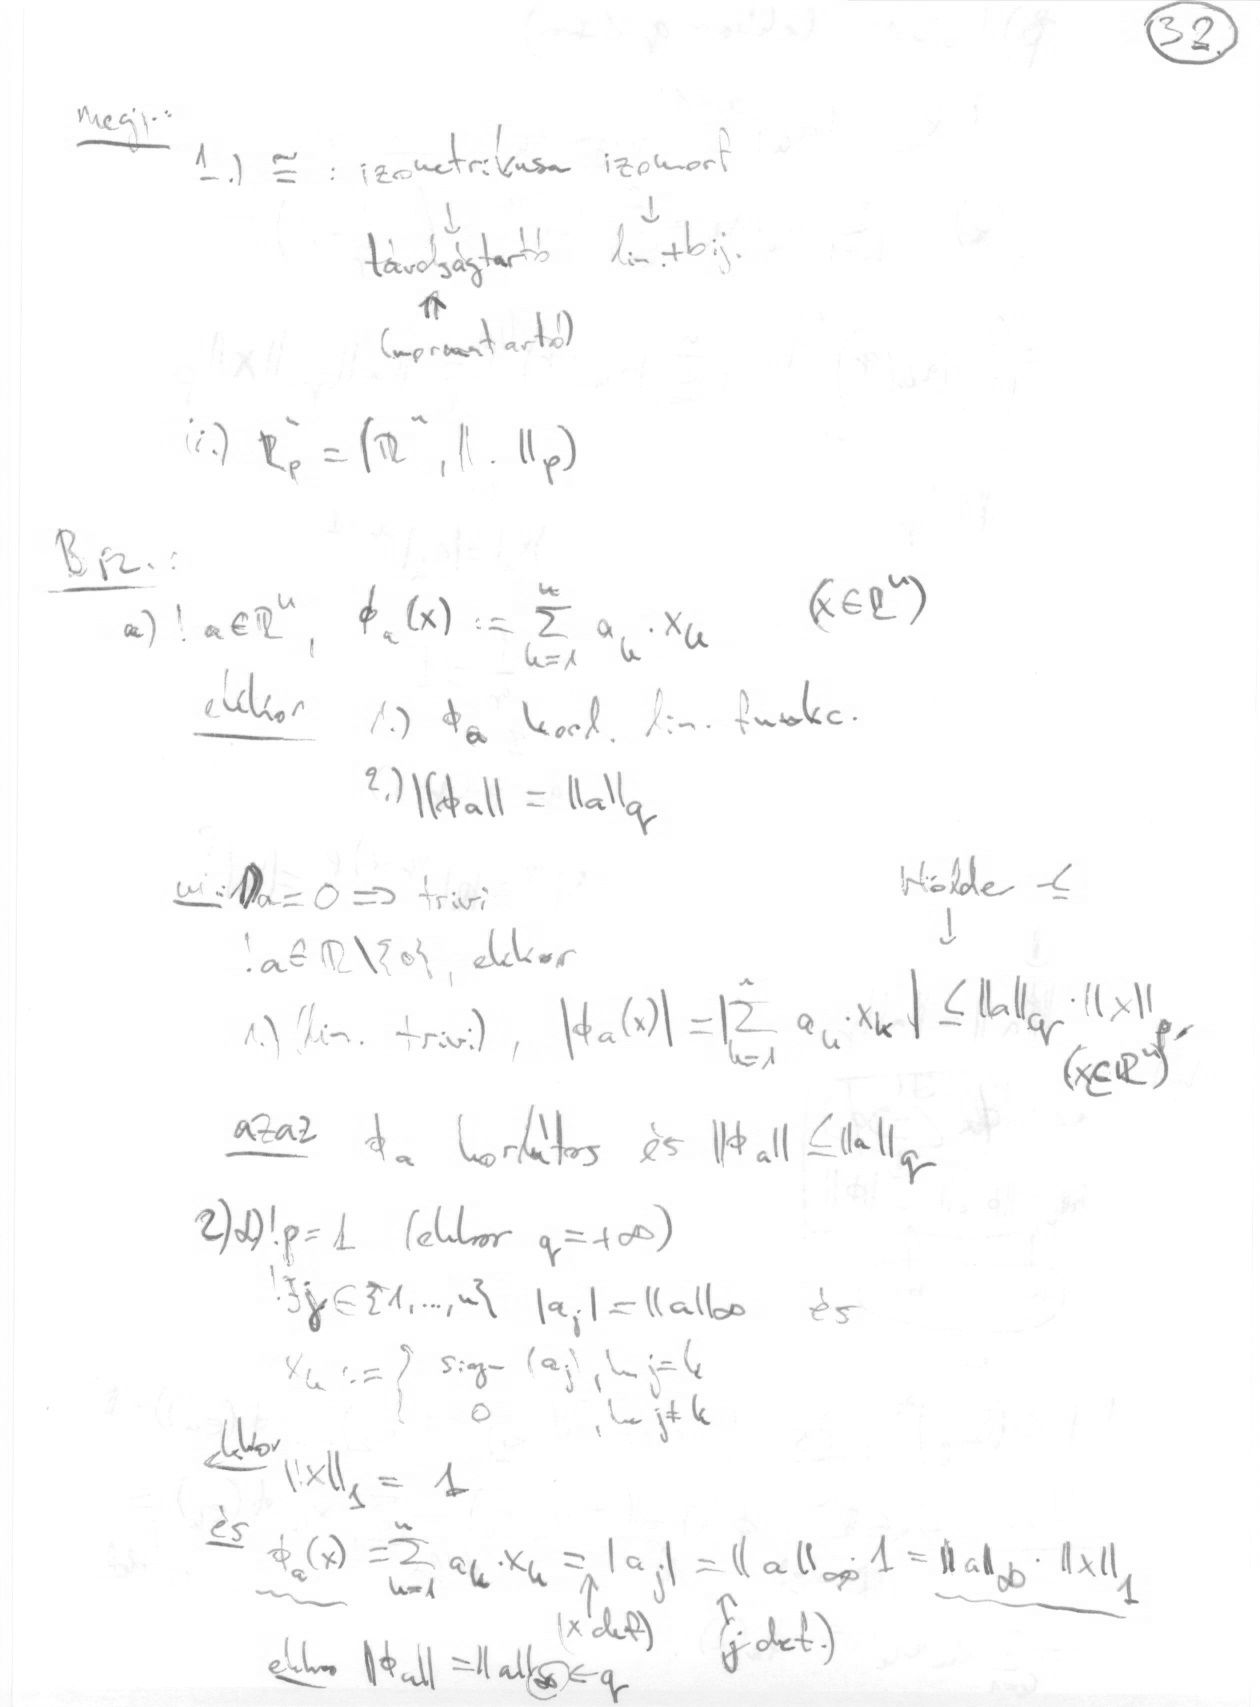 32.
megj.:
1.) ≅ : izometrikusa izomorf
↓ ↓
távolságtartó lin.+bij.
⇑
(normatartó)
ii.) ℝⁿ_p = (ℝⁿ, ‖.‖_p)
Biz.:
a) ! a∈ℝⁿ, ϕ_a(x) := Σ_{k=1}^n a_k · x_k (x∈ℝⁿ)
ekkor 1.) ϕ_a korl. lin. funkc.
2.) ‖ϕ_a‖ = ‖a‖_q
ui: 1) a=0 ⇒ trivi Hölde ≤
↓
! a∈ℝ\{0}, ekkor
1.) (lin. trivi), |ϕ_a(x)| = |Σ_{k=1}^n a_k · x_k| ≤ ‖a‖_q · ‖x‖_p,
(x∈ℝⁿ)
azaz ϕ_a korlátos és ‖ϕ_a‖ ≤ ‖a‖_q
2) α) ! p=1 (ekkor q=+∞)
! ∃j∈{1,...,n} |a_j| = ‖a‖_∞ és
x_k := { sign(a_j), ha j=k
0, ha j≠k
ekkor ‖x‖_1 = 1
és ϕ_a(x) = Σ_{k=1}^n a_k · x_k = |a_j| = ‖a‖_∞ · 1 = ‖a‖_∞ · ‖x‖_1
↑ (x def.) ↑ (j def.)
ekkor ‖ϕ_a‖ = ‖a‖_∞ ← q